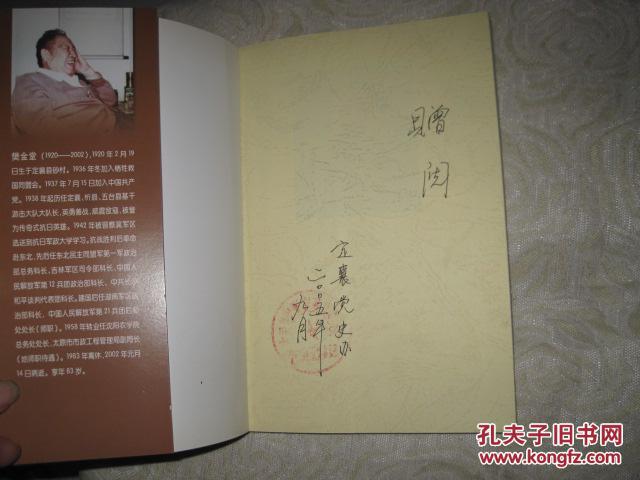 樊金堂(1920——2002),1920年2月19
日生于定襄县砂村。1936年冬加入牺牲救
国同盟会。1937年7月15日加入中国共产
党。1938年起历任定襄、忻县、五台县基干
游击大队大队长,英勇善战,威震敌寇,被誉
为传奇式抗日英雄。1942年被晋察冀军区
选送到抗日军政大学学习。抗战胜利后奉命
赴东北,先后任东北民主同盟军第一军政治
部总务科长,吉林军区司令部科长,中国人
民解放军第12兵团政治部科长,中共长沙
和平谈判代表部科长。建国后任湖南军区政
治部科长、中国人民解放军第21兵团后勤
处处长(师职)。1958年转业任沈阳农学院
总务处处长,太原市市政工程管理局副局长
(地师职待遇)。1983年离休,2002年元月
14日病逝。享年83岁。
赠
阅
定襄党史办
二〇〇五年
九月
孔夫子旧书网
www.kongfz.com